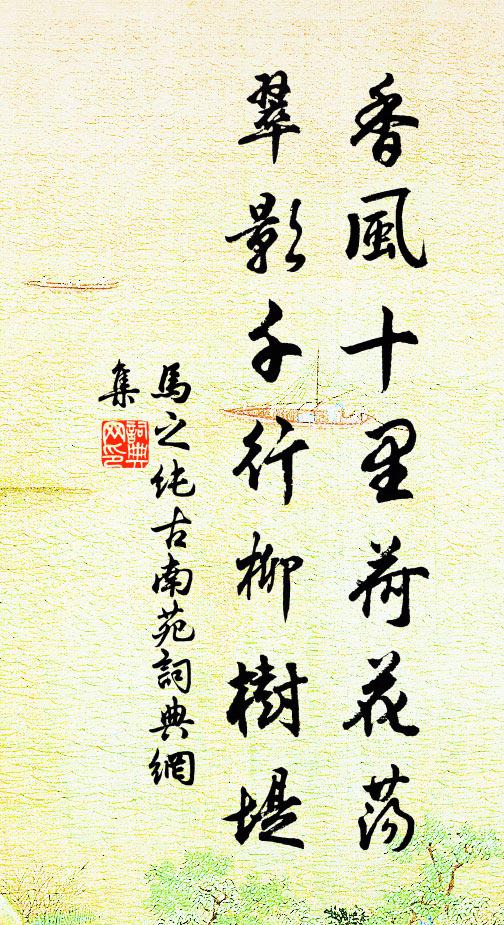 香風十里荷花蕩
翠影千行柳樹堤
馬之純古南苑詞典網
集
詞典
网印